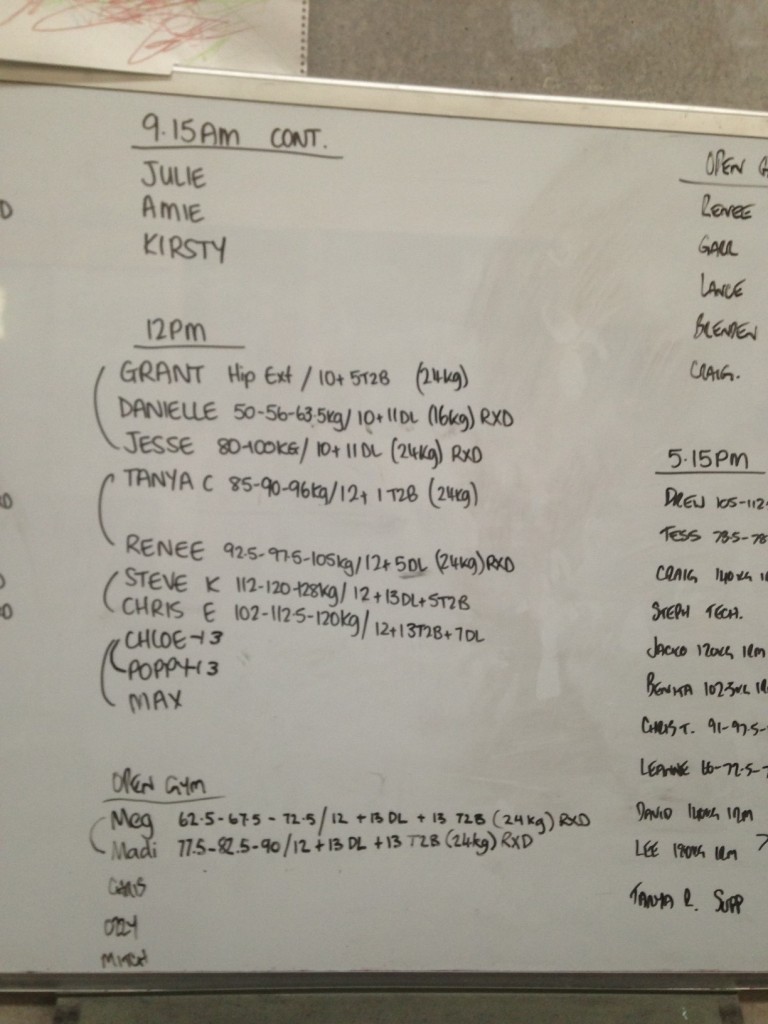 9.15AM CONT.
JULIE
AMIE
KIRSTY
12PM
GRANT Hip Ext / 10+ 5T2B (24kg)
DANIELLE 50-56-63.5kg/ 10+11DL (16kg) RXD
JESSE 80-100KG/ 10+ 11 DL (24kg) RXD
TANYA C 85-90-96kg/12+ 1 T2B (24kg)
RENEE 92.5-97.5-105kg/12+5DL (24kg)RXD
STEVE K 112-120-128kg/ 12+13DL+5T2B
CHRIS E 102-112.5-120kg/ 12+13T2B+7DL
CHLOE-13
POPPY-13
MAX
OPEN GYM
Meg 62.5-67.5-72.5/12 +13 DL + 13 T2B (24kg) RXD
Madi 77.5-82.5-90/12+13DL+13 T2B (24kg) RXD
CHRIS
OZZY
MITCH
OPEN G
RENEE
GARR
LANCE
BRENDEN
CRAIG.
5.15PM
DREW 105-112
TESS 73.5-78
CRAIG 140KG
STEPH TECH.
JACKO 120KG 1RM
102.5KG
CHRIS T. 91-97.5-
LEANNE 66-72.5-
DAVID 140KG 1RM
LEE 1RM
TANYA R. SUPP